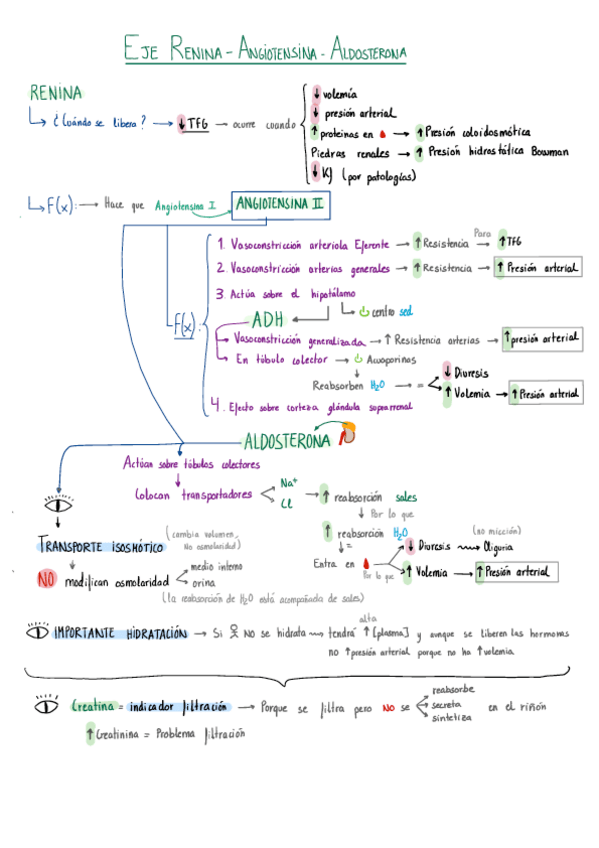 EJE RENINA - ANGIOTENSINA - ALDOSTERONA
RENINA
¿Cuándo se libera? → ↓TFG → ocurre cuando
↓ volemía
↓ presión arterial
↑ proteínas en → ↑ Presión coloidosmótica
Piedras renales → ↑ Presión hidrostática Bowman
↓ Kf (por patologías)
F(x): → Hace que Angiotensina I ANGIOTENSINA II
F(x):
1. Vasoconstricción arteriola Eferente → ↑ Resistencia Para → ↑TFG
2. Vasoconstricción arterias generales → ↑ Resistencia → ↑ Presión arterial
3. Actúa sobre el hipotálamo
centro sed
ADH
Vasoconstricción generalizada → ↑ Resistencia arterias → ↑ presión arterial
En túbulo colector → Acuoporinas
Reabsorben H₂O → =
↓ Diuresis
↑ Volemia → ↑ Presión arterial
4. Efecto sobre corteza glándula suprarrenal
ALDOSTERONA
Actúan sobre túbulos colectores
Colocan transportadores
Na⁺
Cl
→ ↑ reabsorción sales
↓ Por lo que
↑ reabsorción H₂O
↓ =
Entra en
Por lo que
↓ Diuresis → Oliguria
(no micción)
↑ Volemia → ↑ Presión arterial
TRANSPORTE ISOSMÓTICO
(cambia volumen, No osmolaridad)
NO modifican osmolaridad
medio interno
orina
(la reabsorción de H₂O está acompañada de sales)
IMPORTANTE HIDRATACIÓN → Si NO se hidrata → tendrá alta ↑ [plasma] y aunque se liberen las hormonas
no ↑ presión arterial porque no ha ↑ volemia.
Creatina = indicador filtración → Porque se filtra pero NO se
reabsorbe
secreta
sintetiza
en el riñón
↑ Creatinina = Problema filtración